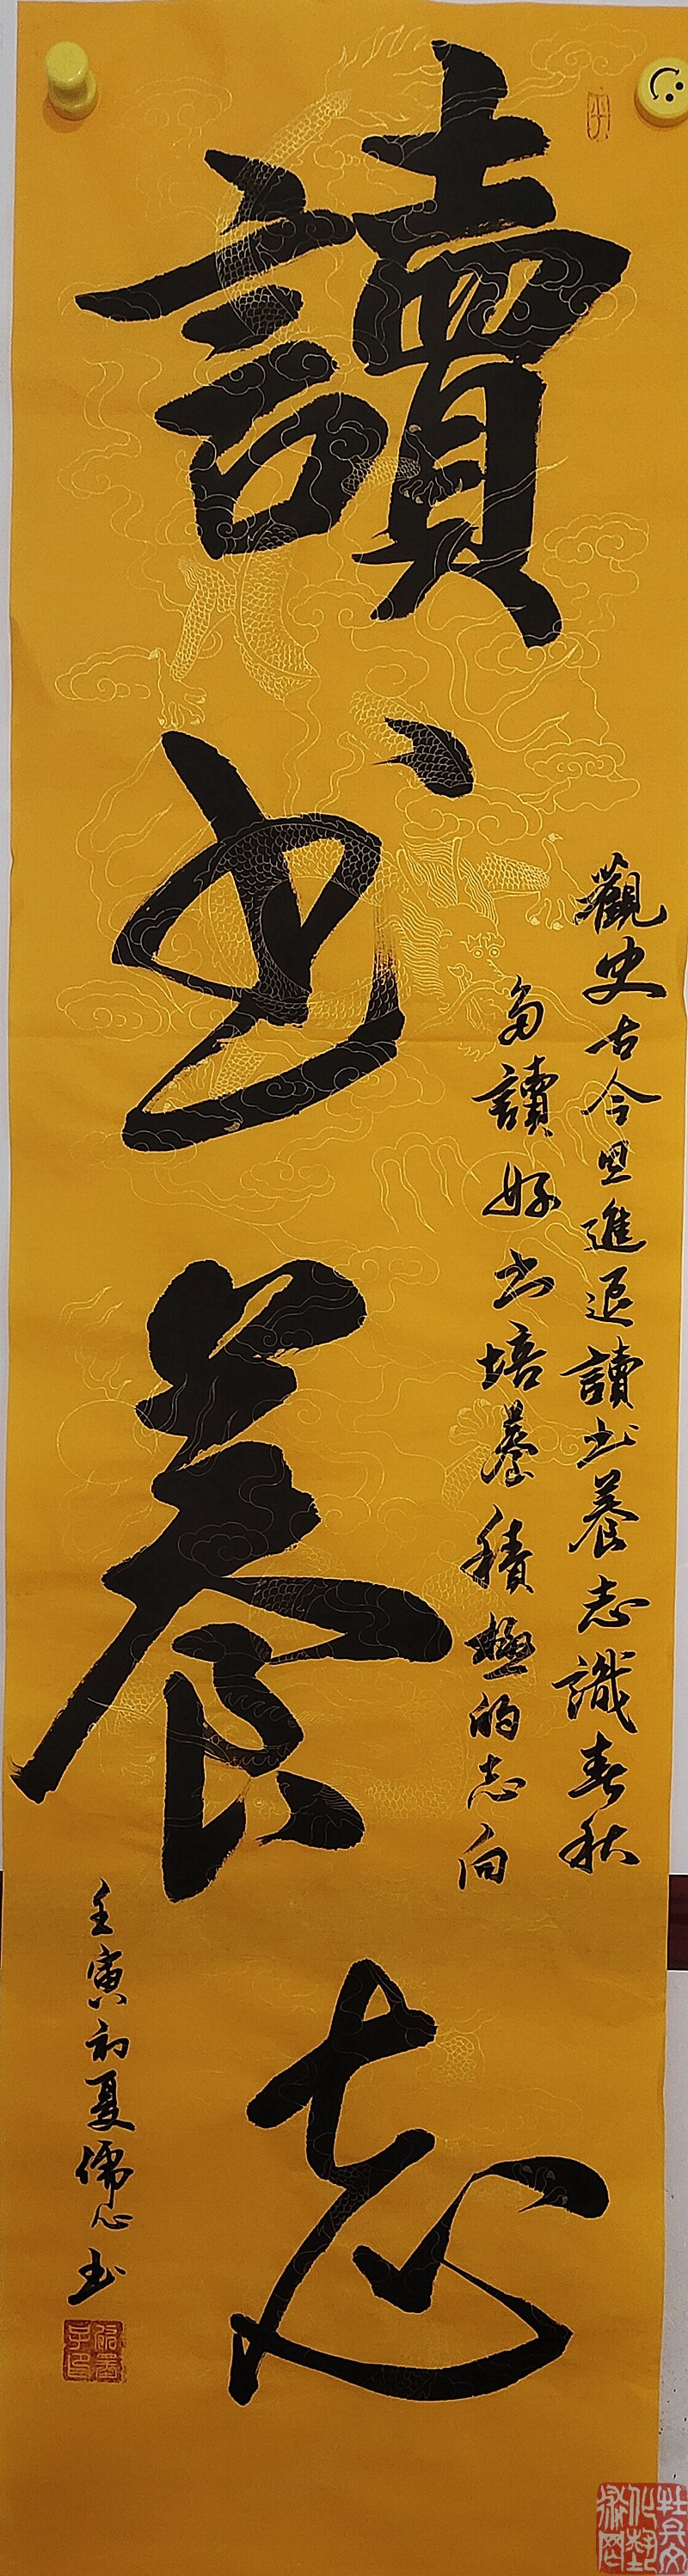 讀书養志
觀史古今思進退讀书養志識春秋
多讀好书培養積極的志向
壬寅初夏儒心书